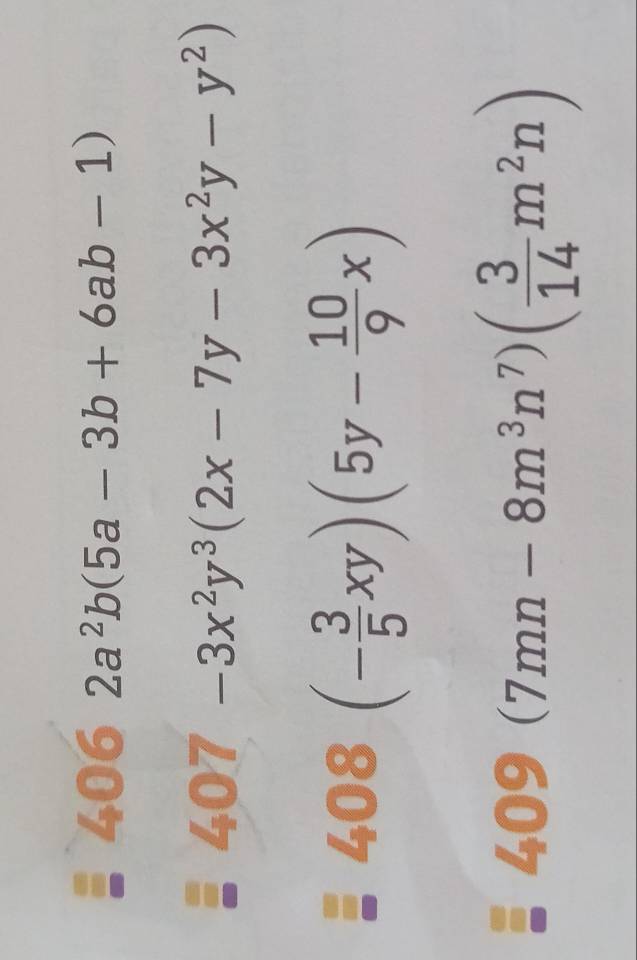 406 2a²b(5a − 3b + 6ab − 1)
407 −3x²y³(2x − 7y − 3x²y − y²)
408 (−3/5 xy)(5y − 10/9 x)
409 (7mn − 8m³n⁷)(3/14 m²n)